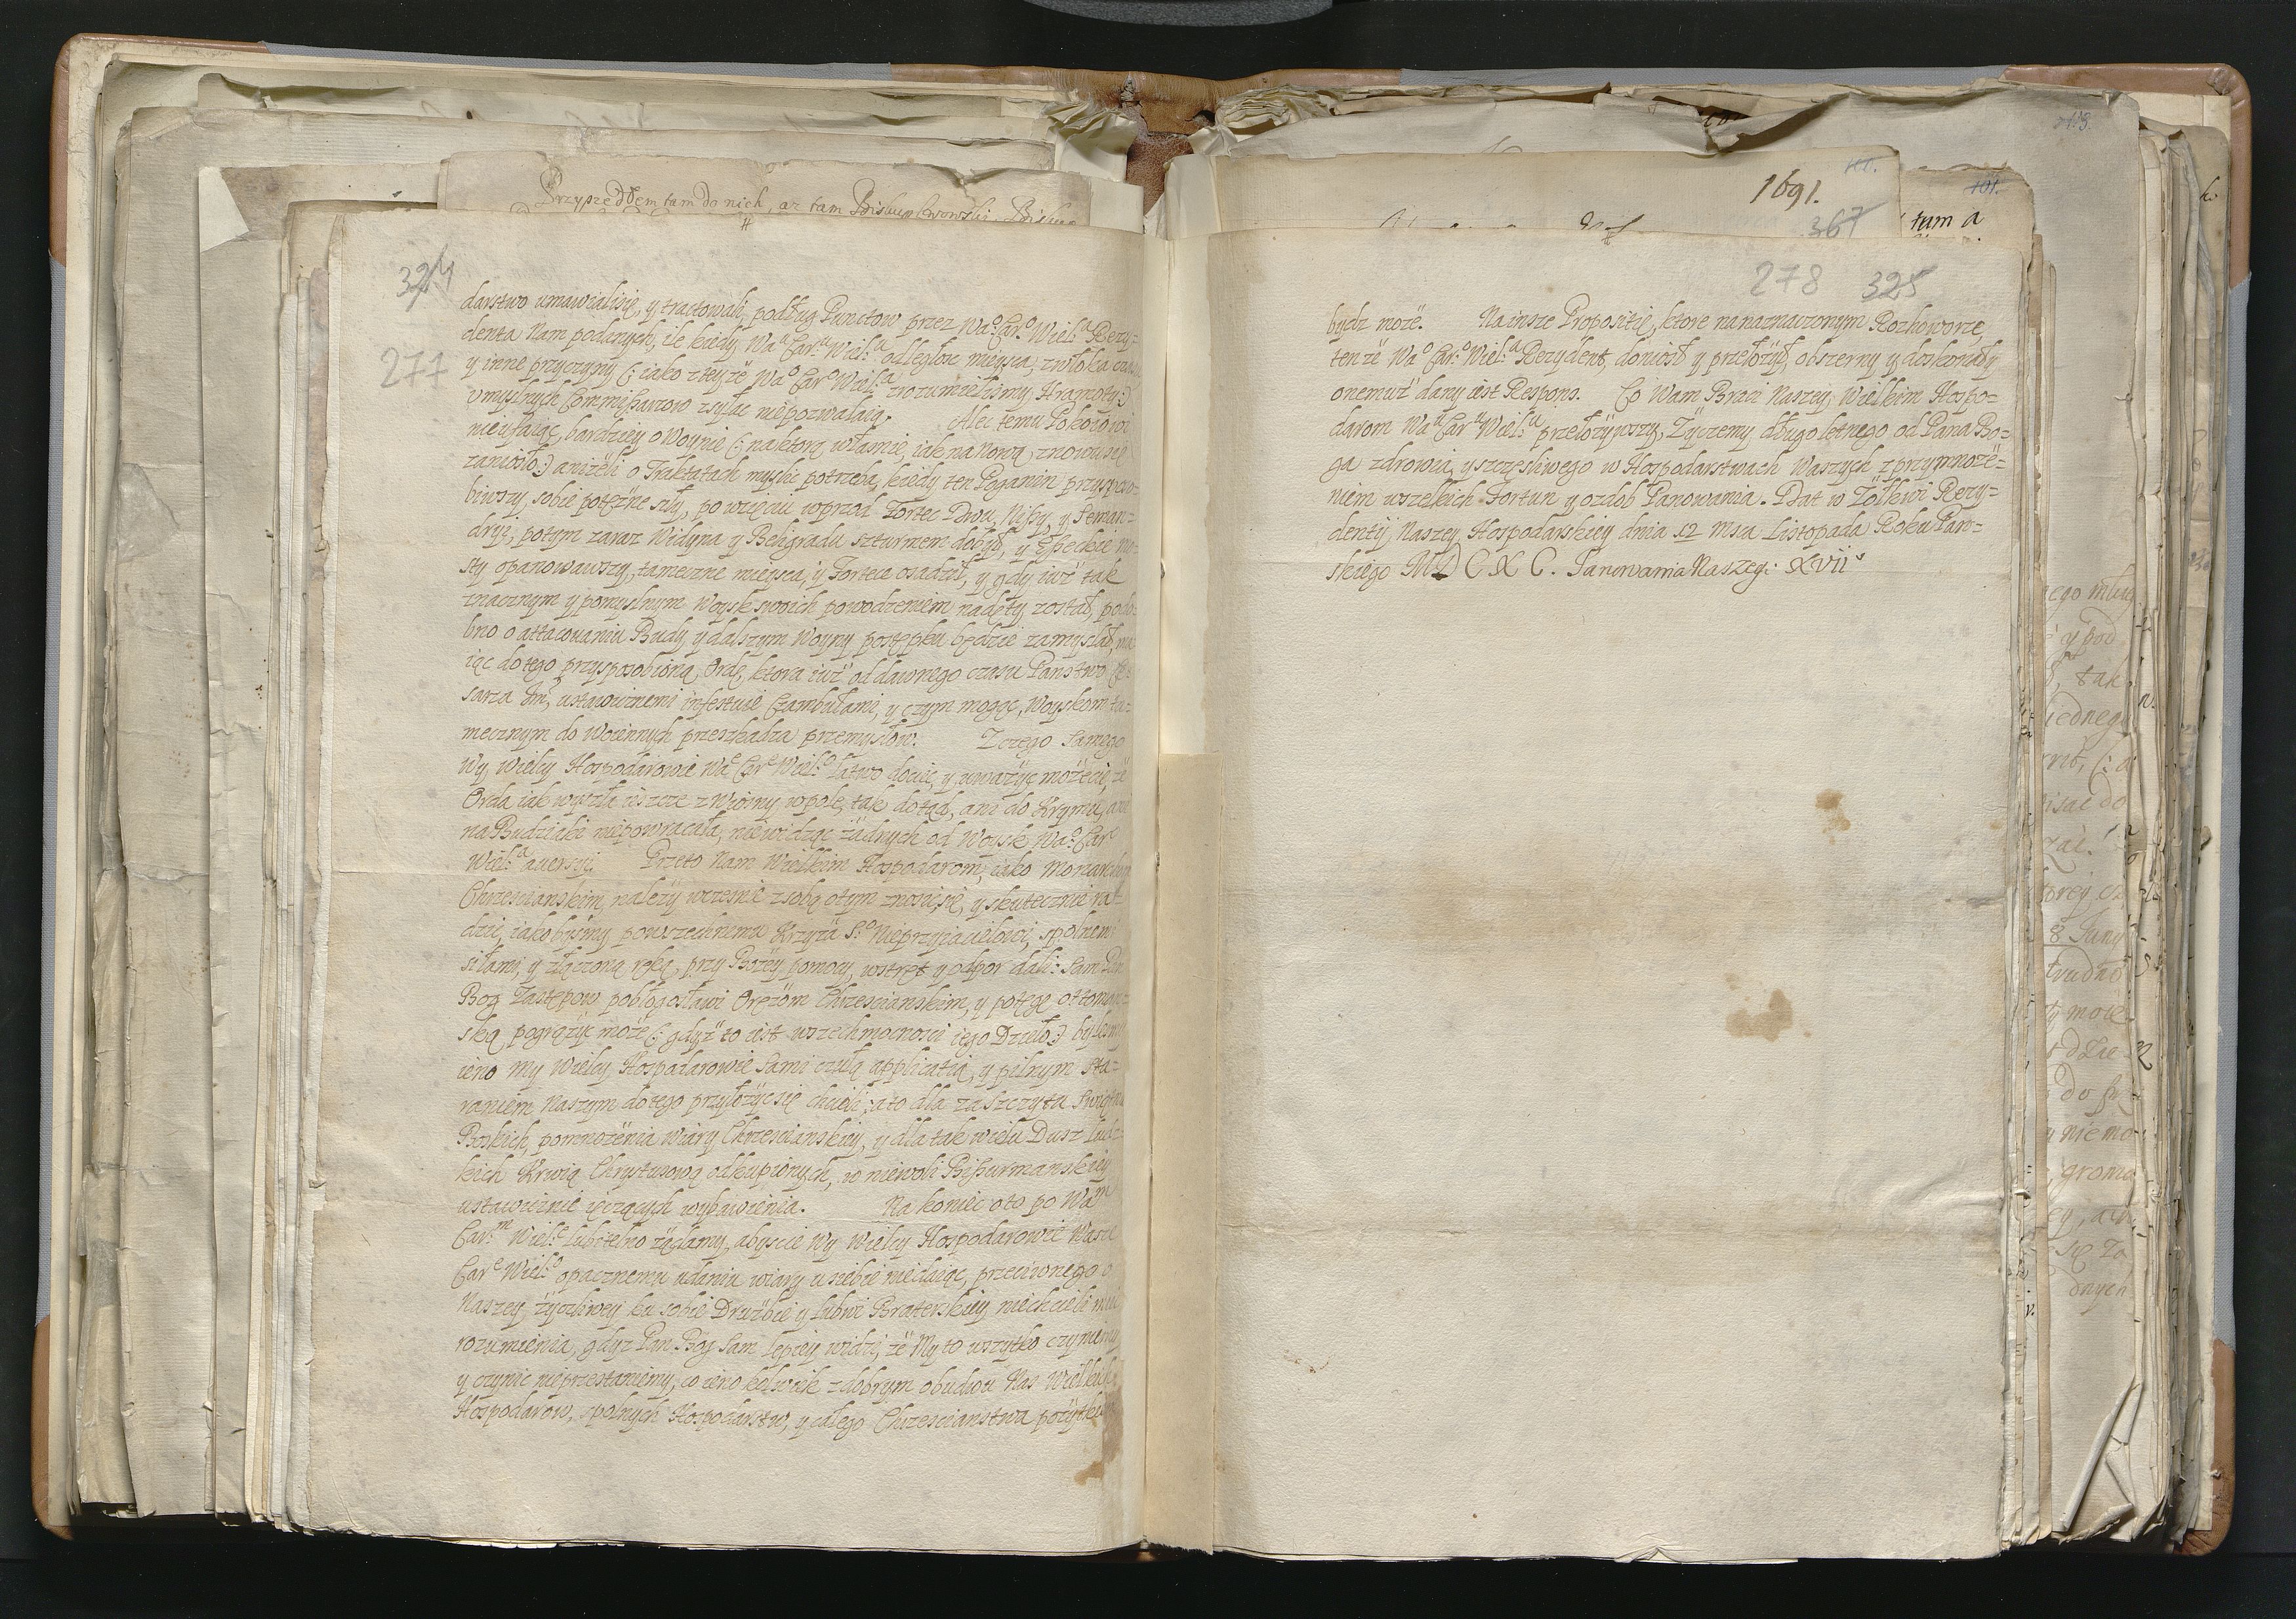 Przyszedłem tam do nich, aż tam Biskup Lwowski, Biskup
324
277
darstwo umawialisię, y tractowali, podług Punctow przez Wao Caro Wiel:a Rezy=
denta Nam podanych, ile kiedy Waa Car:a Wiel:a odległosc mieysca, zwłoka czasu,
y inne przyczyny (: iako z teyże Wao Caro Wiel:a zrozumielismy Hramoty :)
umyslnych Commissarzow zsyłac niepozwalaią. Alec temu Pokoiowi
nieufaiąc, bardziey o Woynie (: na ktorą własnie, iak na Nową, znowu się
zaniosło :) aniżeli o Traktatach myslic potrzeba, kiedy ten Poganin przysposo=
biwszy, sobie potężne siły, po wzięciu wprzod Fortec Dwu, Nissy, y Seman=
dryi, potym zaraz Widyna y Beligradu szturmem dobył, y Esseckie mo=
sty opanowawszy, tameczne mieysca, y Fortece osadził, y gdy iuż tak
znacznym y pomyslnym Woysk swoich powodzeniem nadęty został, podo=
bno o attacowaniu Budy y dalszym Woyny postępku będzie zamyslał, ma=
iąc do tego przysposobioną Ordę, ktora iuż od dawnego czasu Panstwo Ce=
sarza Jmci ustawicznemi infestuie Czambułami, y czym mogąc, Woyskom ta=
mecznym do Woiennych przeszkadza przemysłow. Z czego samego
Wy Wielcy Hospodarowie Wae Care Wiel:a łatwo dociec, y uważyc możecie, że
Orda iak wyszła ieszcze z Wiosny w pole, tak dotąd, ani do Krymu, ani
na Budziaki niepowracała, niewidząc żadnych od Woysk Wa:o Caro
Wiel:a aversyi. Przeto Nam Wielkim Hospodarom, iako Monarchom
Chrzescianskim, należy wczesnie z sobą o tym znosic się, y skutecznie ra=
dzic, iakobysmy powszechnemu Krzyża S:o Nieprzyiacielowi, spolnemi
siłami, y złączoną ręką, przy Bozey pomocy, wstręt y odpor dali: Sam Pan
Bog Zastępow pobłogosławi Orężom Chrzescianskim, y potęgę ottoman=
ską, pogrążyc może (: gdyż to iest wszechmocnosci iego Dzieło :) bylesmy
ieno My Wielcy Hospodarowie sami czułą applicatią, y pilnym sta=
raniem Naszym do tego przyłożyc się chcieli; a to dla zaszczytu Swiątnic
Boskich, pomnożenia Wiary Chrzescianskiey, y dla tak wielu Dusz ludz=
kich Krwią Chrystusową odkupionych, w niewoli Bissurmanskiey
ustawicznie ięczących wybawienia. Na koniec oto po Wam
Car:m Wiel:e lubitelno żądamy, abyscie Wy Wielcy Hospodarowie Wasze
Care Wiel:a opacznemu udaniu wiary u siebie niedaiąc, przeciwnego o
Naszey życzliwey ku sobie Drużbie y lubwi Braterskiey niechcieli miec
rozumienia, gdyz Pan Bog sam lepiey widzi, że My to wszytko czynimy
y czynic nieprzestaniemy, co ieno kolwiek z dobrym obudwu Nas Wielkich
Hospodarow, spolnych Hospodarstw, y całego Chrzescianstwa pożytkiem
1691.
367
101.
tam a
278 325
bydz może. Na insze Propositie, ktore na naznaczonym Rozhoworze,
tenże Wa:o Car:o Wiel:a Rezydent, doniosł y przełożył, obszerny y doskonały
onemuż dany iest Respons. Co Wam Braci Naszey, Wielkim Hospo=
darom Wau Caru Wiel:u przełożywszy, Życzemy długo letnego od Pana Bo=
ga zdrowia, y szczęsliwego w Hospodarstwach Waszych z przymnoże=
niem wszelkich Fortun y ozdob Panowania. Dat w Żołkwi Rezy=
dentij Naszey Hospodarskiey dnia 12 Msca Listopada Roku Pan=
skiego M D C X C. Panowania Naszego XVII